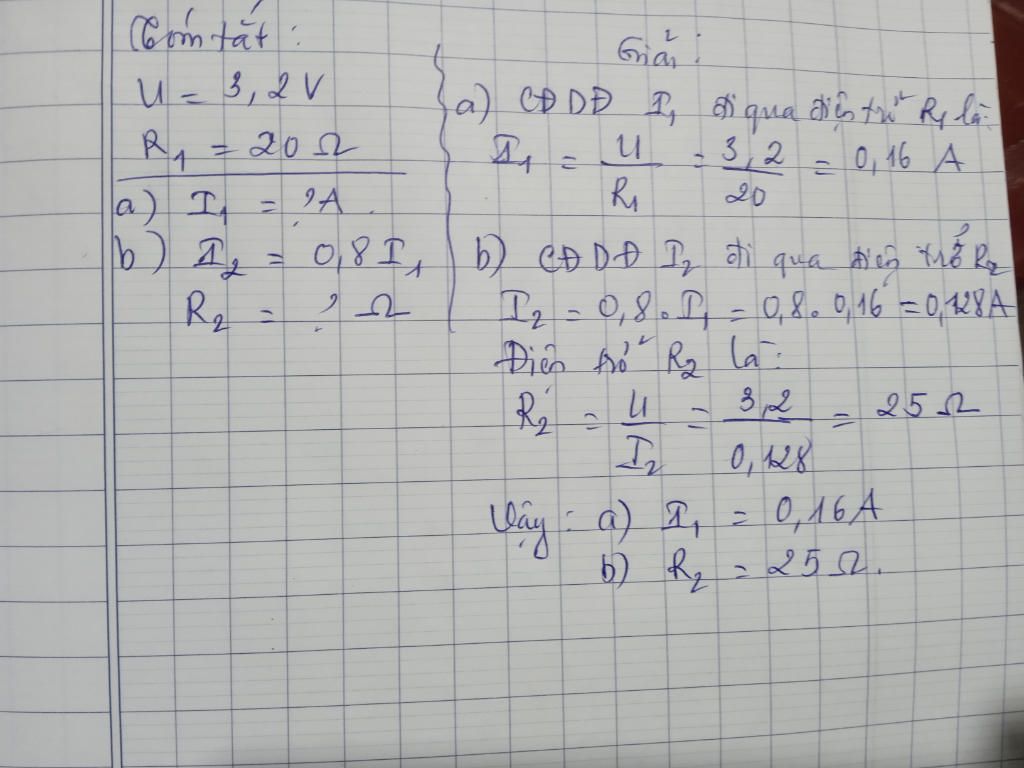 Tóm tắt:
U = 3,2V
R1 = 20 Ω
a) I1 = ?A.
b) I2 = 0,8I1
R2 = ? Ω
Giải:
a) CĐDĐ I1 đi qua điện trở R1 là:
I1 = U/R1 = 3,2/20 = 0,16 A
b) CĐDĐ I2 đi qua điện trở R2
I2 = 0,8.I1 = 0,8.0,16 = 0,128A
Điện trở R2 là:
R2 = U/I2 = 3,2/0,128 = 25 Ω
Vậy: a) I1 = 0,16A
b) R2 = 25Ω.